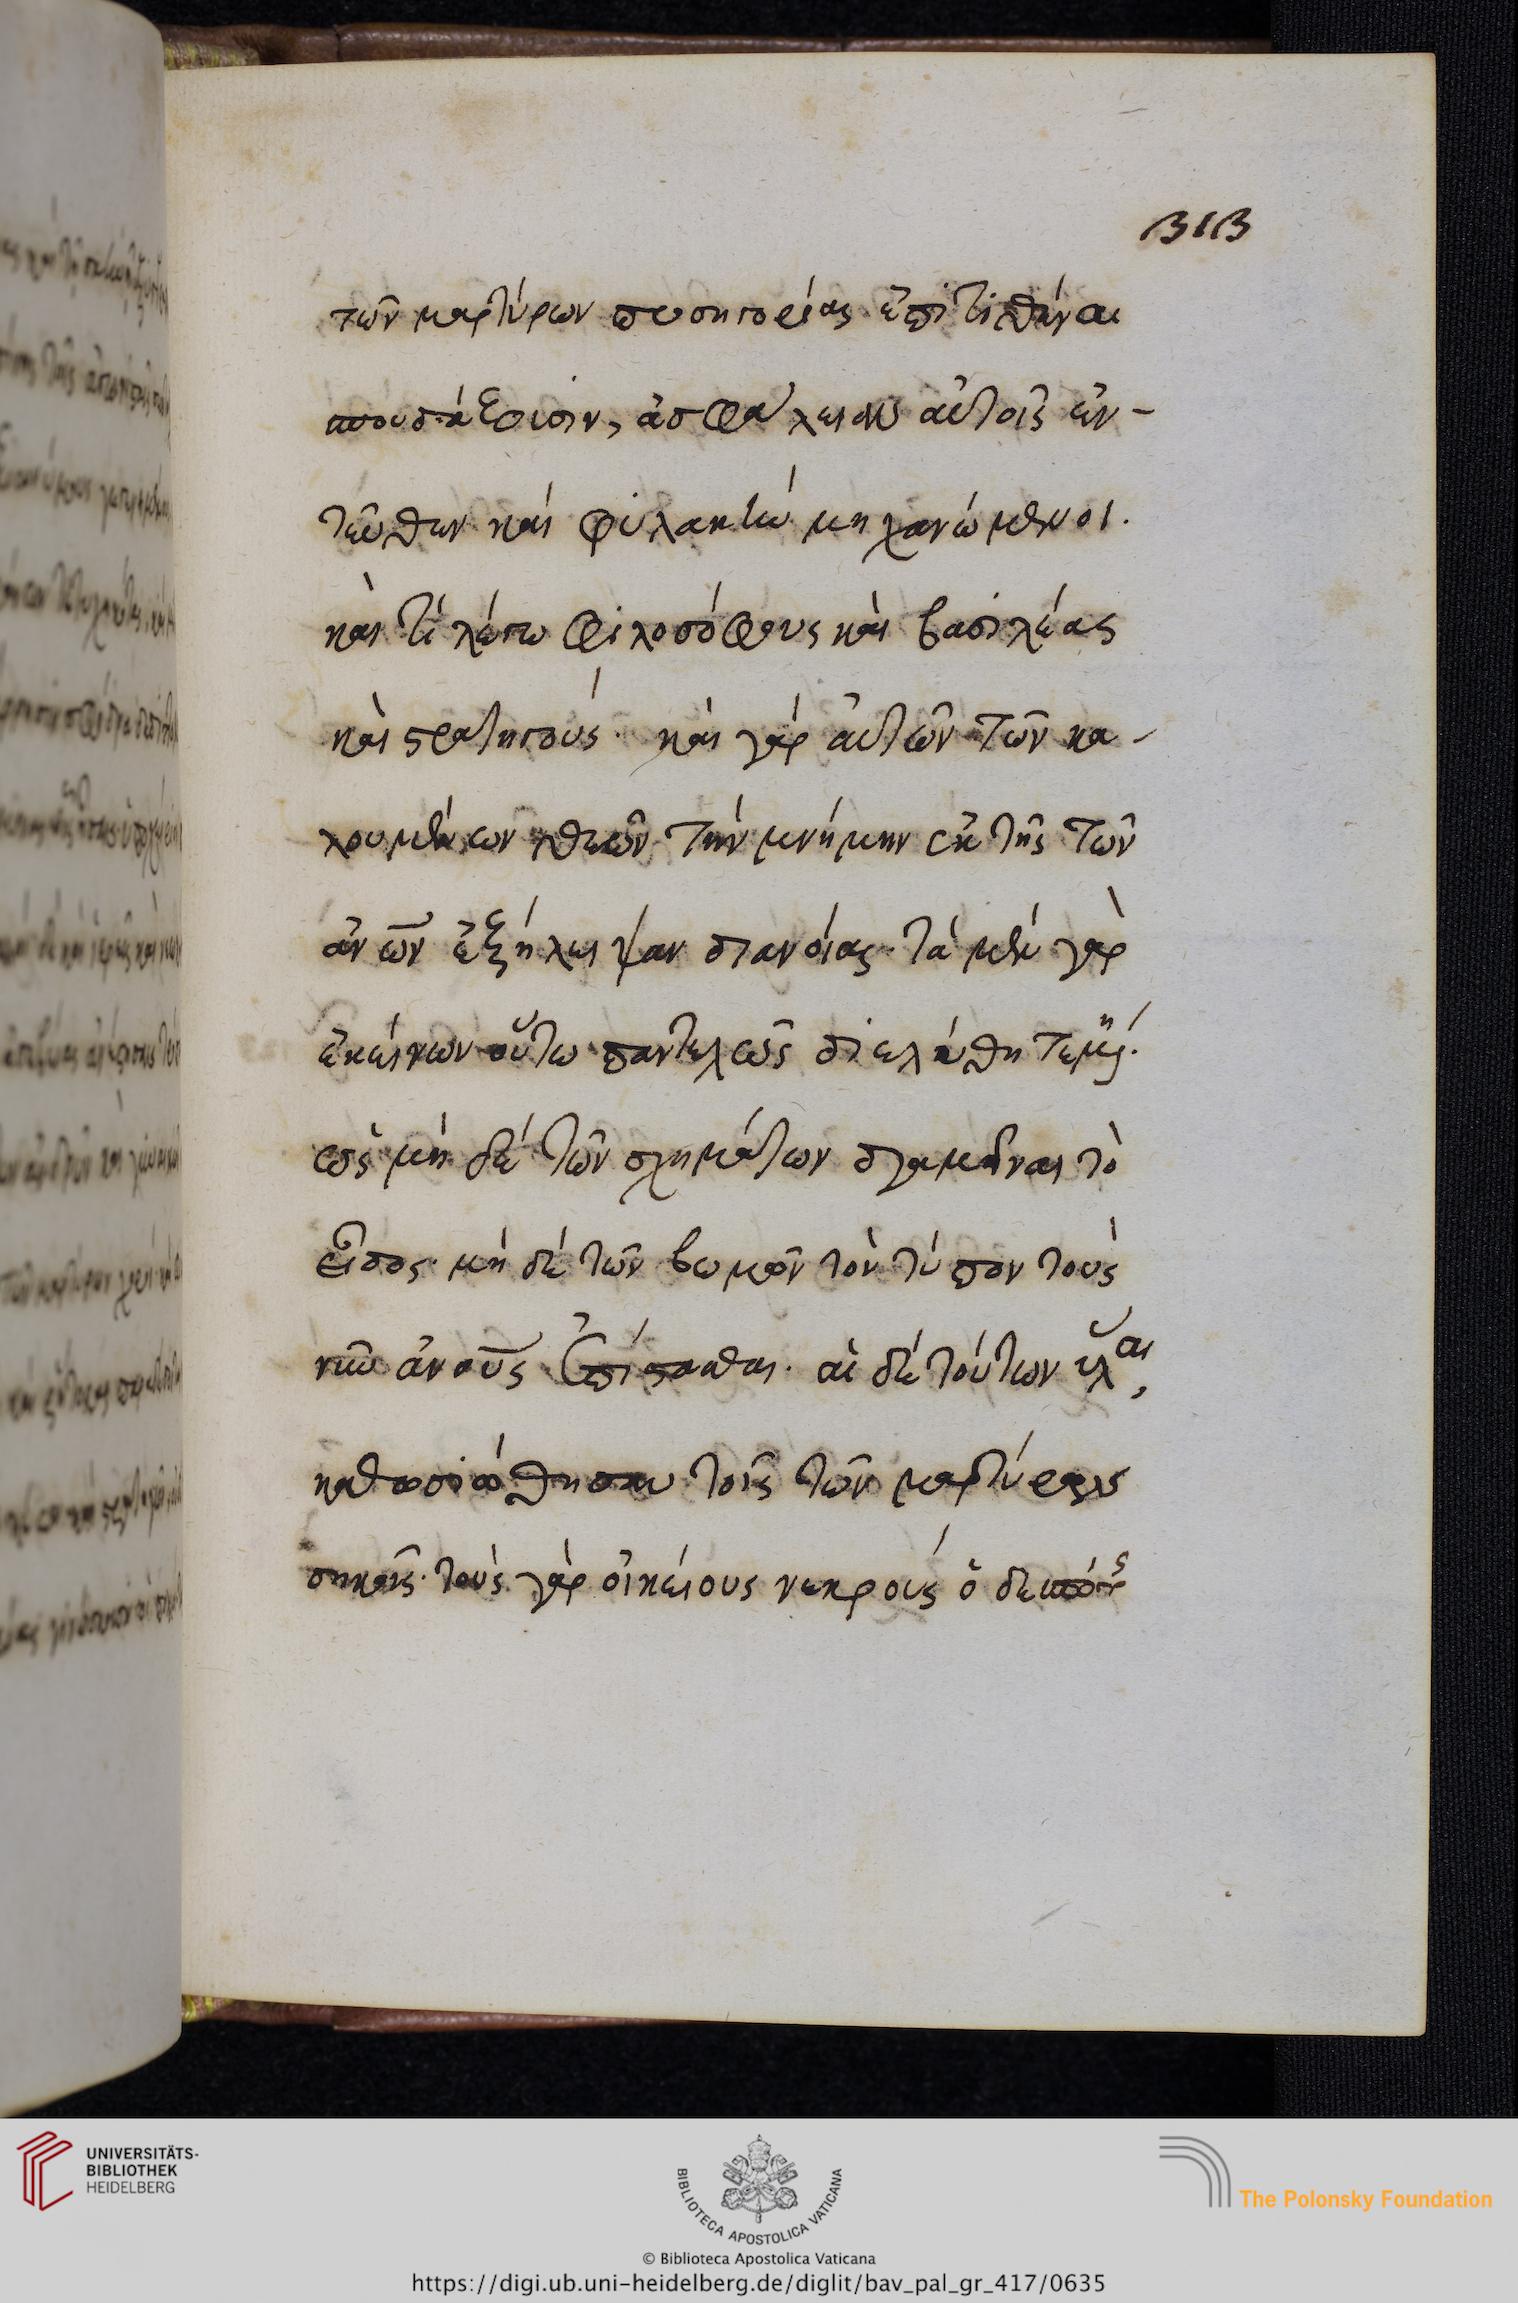 313
τῶν μαρτύρων προσηγορίας ἐπιτιθέναι
σπουδάζουσιν, ἀσφάλειαν αὐτοῖς ἐν-
τεῦθεν καὶ φυλακὴν μηχανώμενοι.
καὶ τί λέγω φιλοσόφους καὶ βασιλέας
καὶ στρατηγούς· καὶ γὰρ αὐτῶν τῶν κα-
λουμένων θεῶν τὴν μνήμην ἐκ τῆς τῶν
ἀνῶν ἐξήλειψαν διανοίας· τὰ μὲν γὰρ
ἐκείνων οὕτω παντελῶς διελύθη τεμένη·
ὡς μὴ δὲ τῶν σχημάτων διαμεῖναι τὸ
εἶδος· μὴ δὲ τῶν βωμῶν τὸν τύπον τοὺς
νῦν ἀνους ἐπίστασθαι· αἱ δὲ τούτων ὗλαι,
καθωσιώθησαν τοῖς τῶν μαρτύρων
σηκοῖς· τοὺς γὰρ οἰκείους νεκροὺς ὁ δεσπότης
UNIVERSITÄTS-
BIBLIOTHEK
HEIDELBERG
BIBLIOTECA APOSTOLICA VATICANA
The Polonsky Foundation
© Biblioteca Apostolica Vaticana
https://digi.ub.uni-heidelberg.de/diglit/bav_pal_gr_417/0635